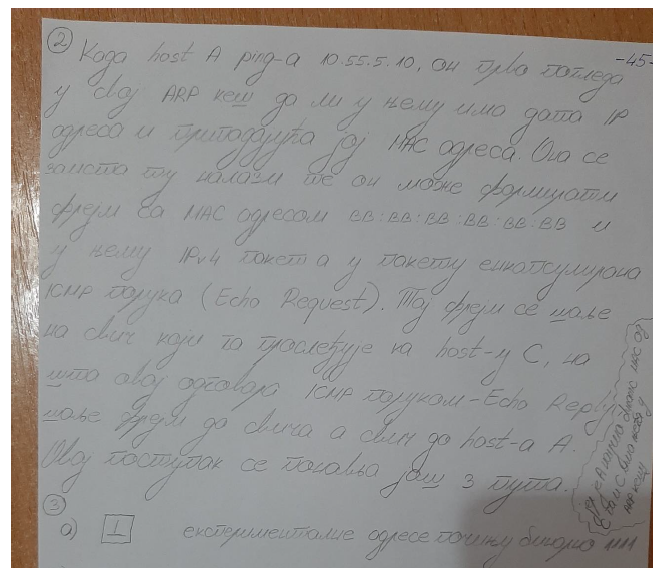 ② Када host A ping-a 10.55.5.10, он прво погледа
-45-
у свој ARP кеш да ли у њему има дата IP
адреса и припадајућа јој MAC адреса. Она се
заиста ту налази те он може формирати
фрејм са MAC адресом BB:BB:BB:BB:BB:BB и
у њему IPv4 пакет а у пакету енкапсулирана
ICMP порука (Echo Request). Тај фрејм се шаље
на свич који га прослеђује ка host-у C, на
шта овај одговара ICMP поруком-Echo Reply
шаље фрејм до свича а свич до host-а A.
Овај поступак се понавља још 3 пута.
MAC од
и C
ARP кеш
③
а) 1 експерименталне адресе почињу бинарно 1111